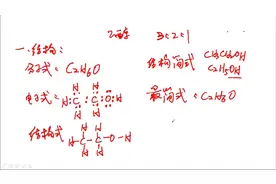 乙醇
3:2:1
一.结构:
分子式:C₂H₆O
结构简式 CH₃CH₂OH
C₂H₅OH
电子式:H:C:C:O:H
H H
H H
最简式:C₂H₆O
结构式
H H
H-C-C-O-H
H H